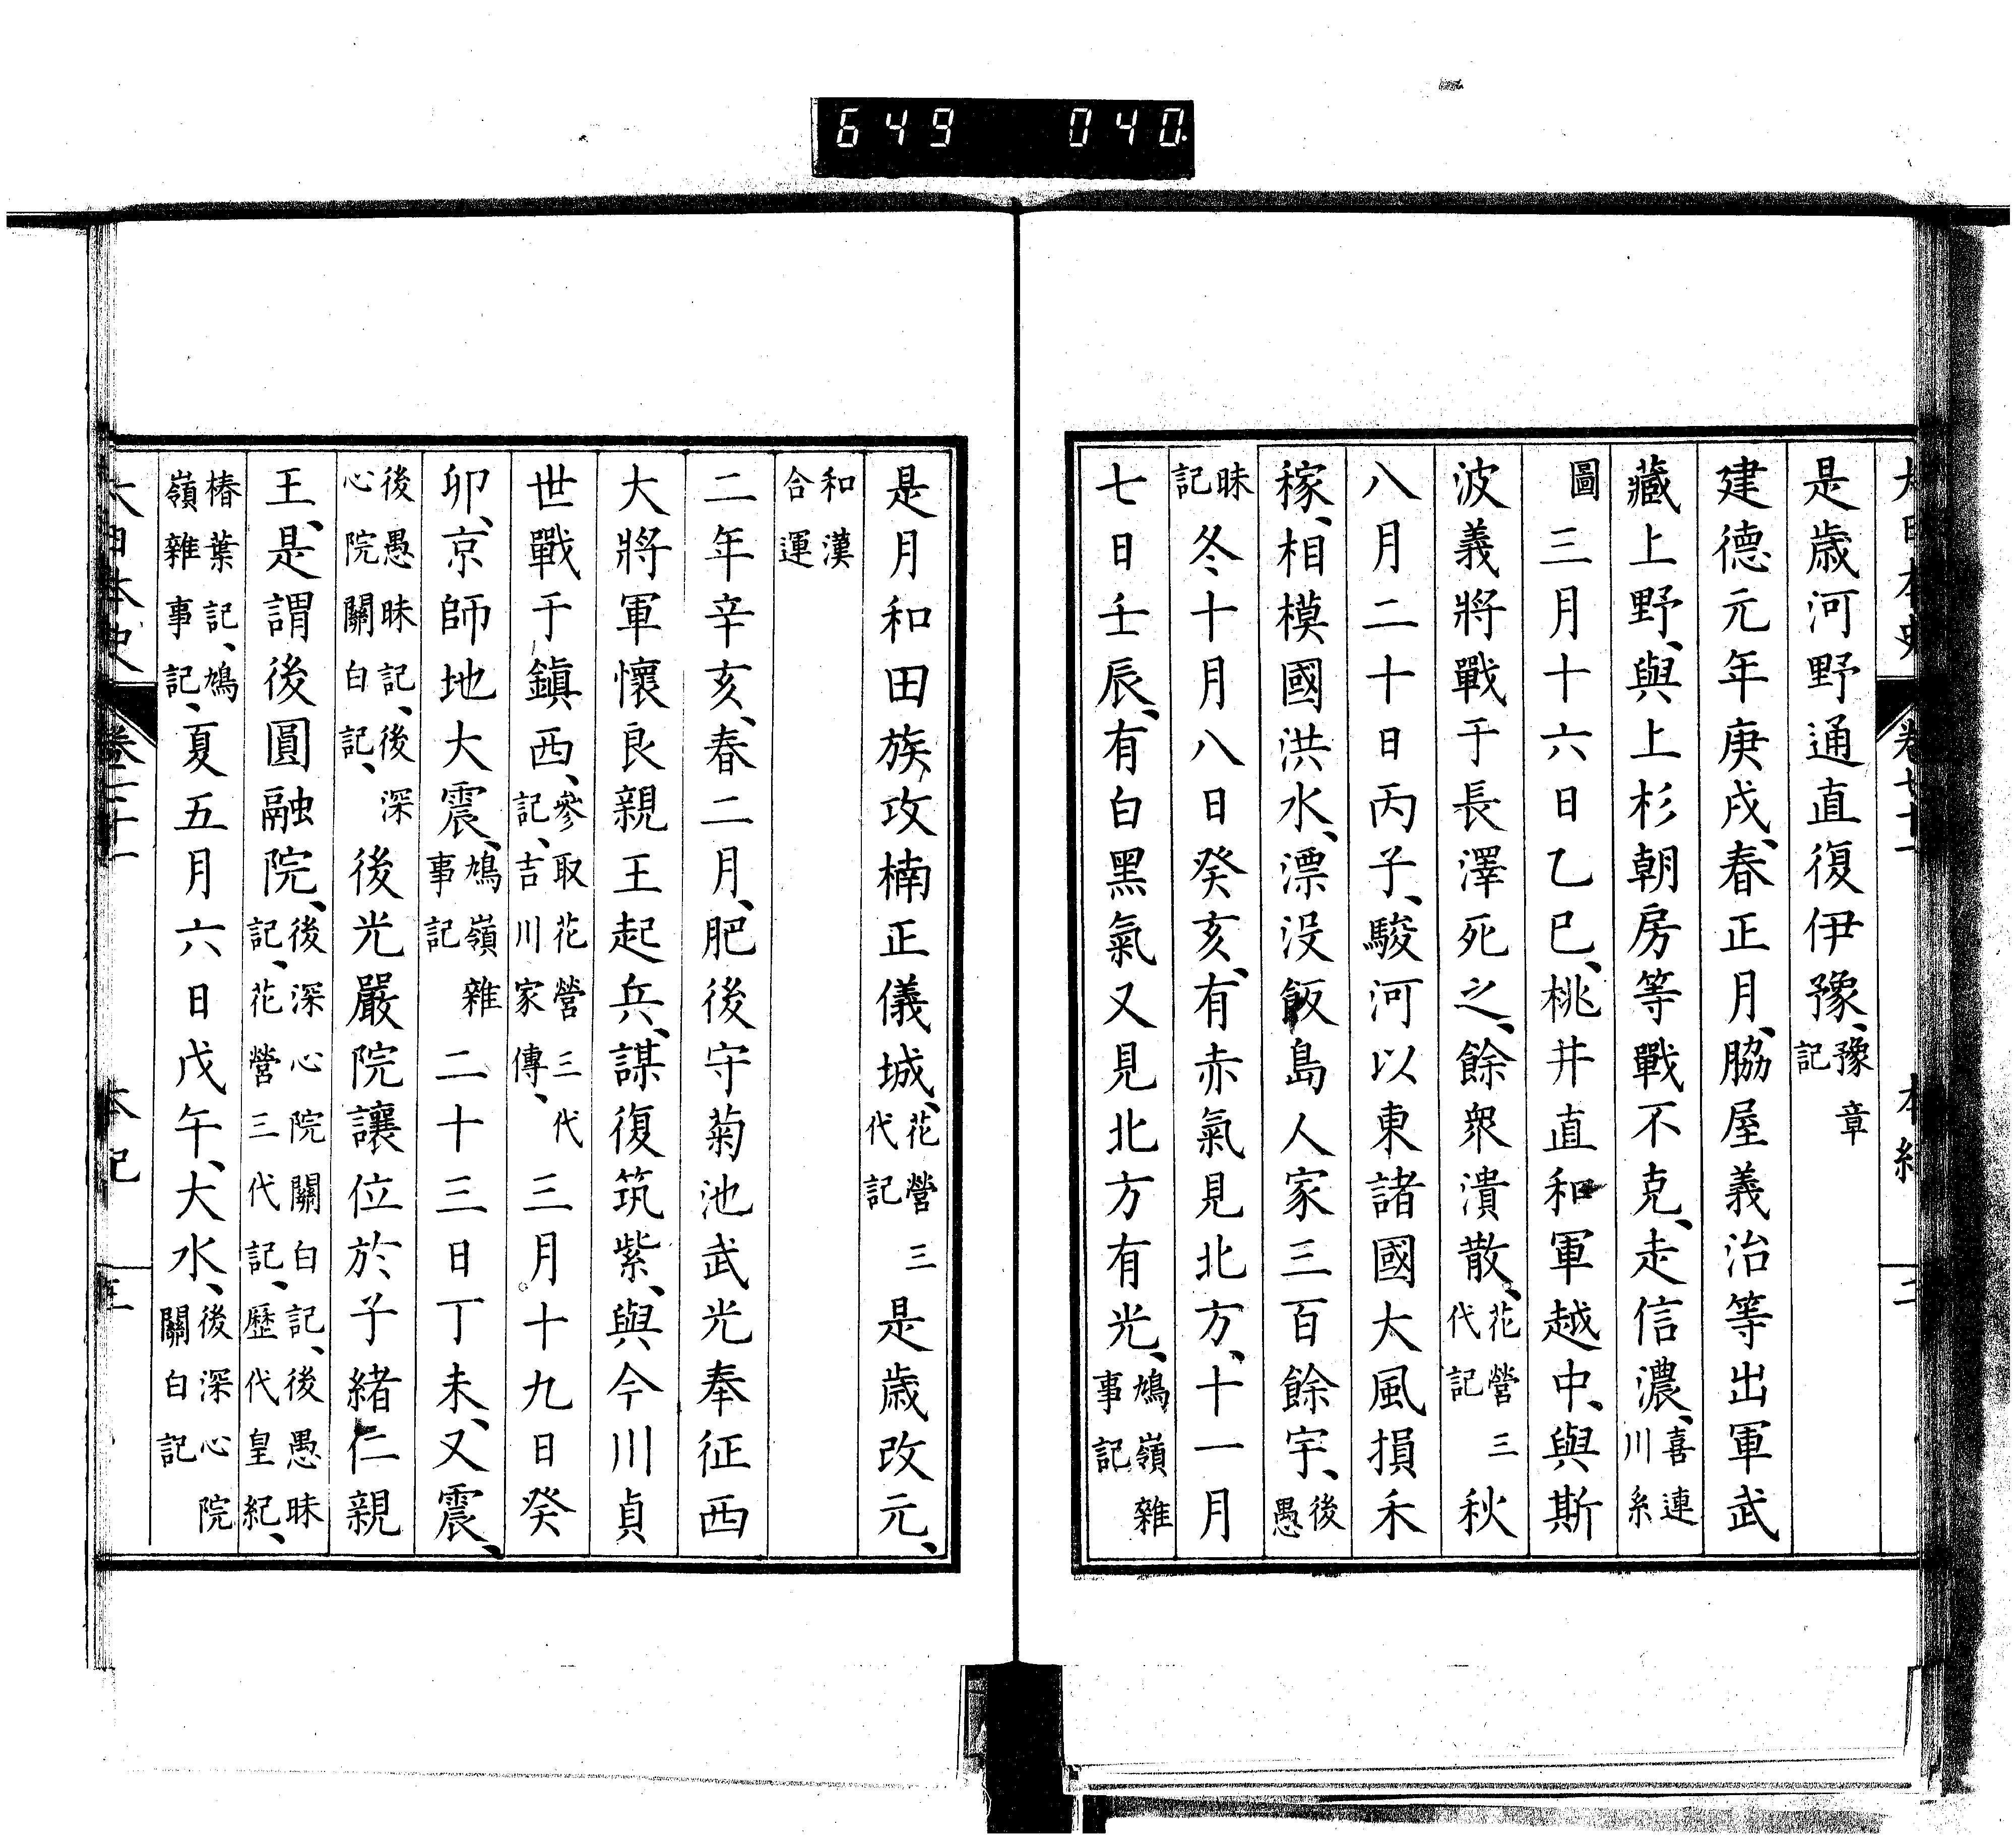 649 040
大日本史 卷七十一 本紀 二
是歲河野通直復伊豫、豫章記
建德元年庚戌、春正月、脇屋義治等出軍武
藏上野、與上杉朝房等戰不克、走信濃、喜連川系
圖 三月十六日乙巳、桃井直和軍越中、與斯
波義將戰于長澤死之、餘眾潰散、花營三代記 秋
八月二十日丙子、駿河以東諸國大風損禾
稼、相模國洪水、漂没飯島人家三百餘宇、後愚
昧記 冬十月八日癸亥、有赤氣見北方、十一月
七日壬辰、有白黑氣又見北方有光、鳩嶺雜事記
是月和田族攻楠正儀城、花營三代記 是歲改元、
和漢合運
二年辛亥、春二月、肥後守菊池武光奉征西
大將軍懷良親王起兵、謀復筑紫、與今川貞
世戰于鎭西、參取花營三代記、吉川家傳、 三月十九日癸
卯、京師地大震、鳩嶺雜事記 二十三日丁未、又震、
後愚昧記、後深心院關白記、 後光嚴院讓位於子緒仁親
王、是謂後圓融院、後深心院關白記、後愚昧記、花營三代記、歷代皇紀、
椿葉記、鳩嶺雜事記、夏五月六日戊午、大水、後深心院關白記
大日本史 卷七十一 本紀 三